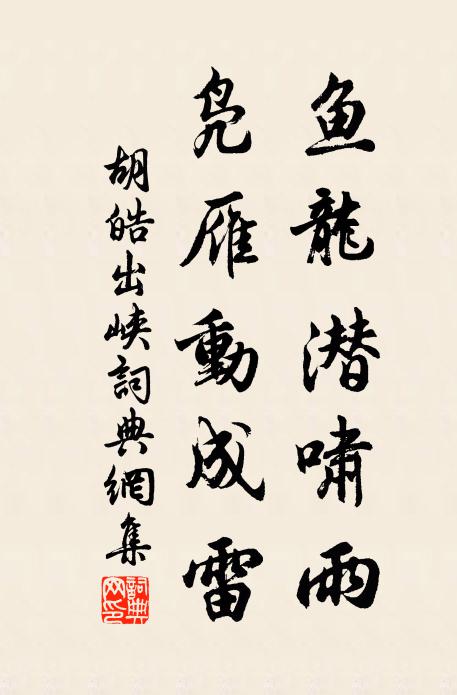 鱼龍潜嘯雨
凫雁動成雷
胡皓出峡詞典網集
詞典網印